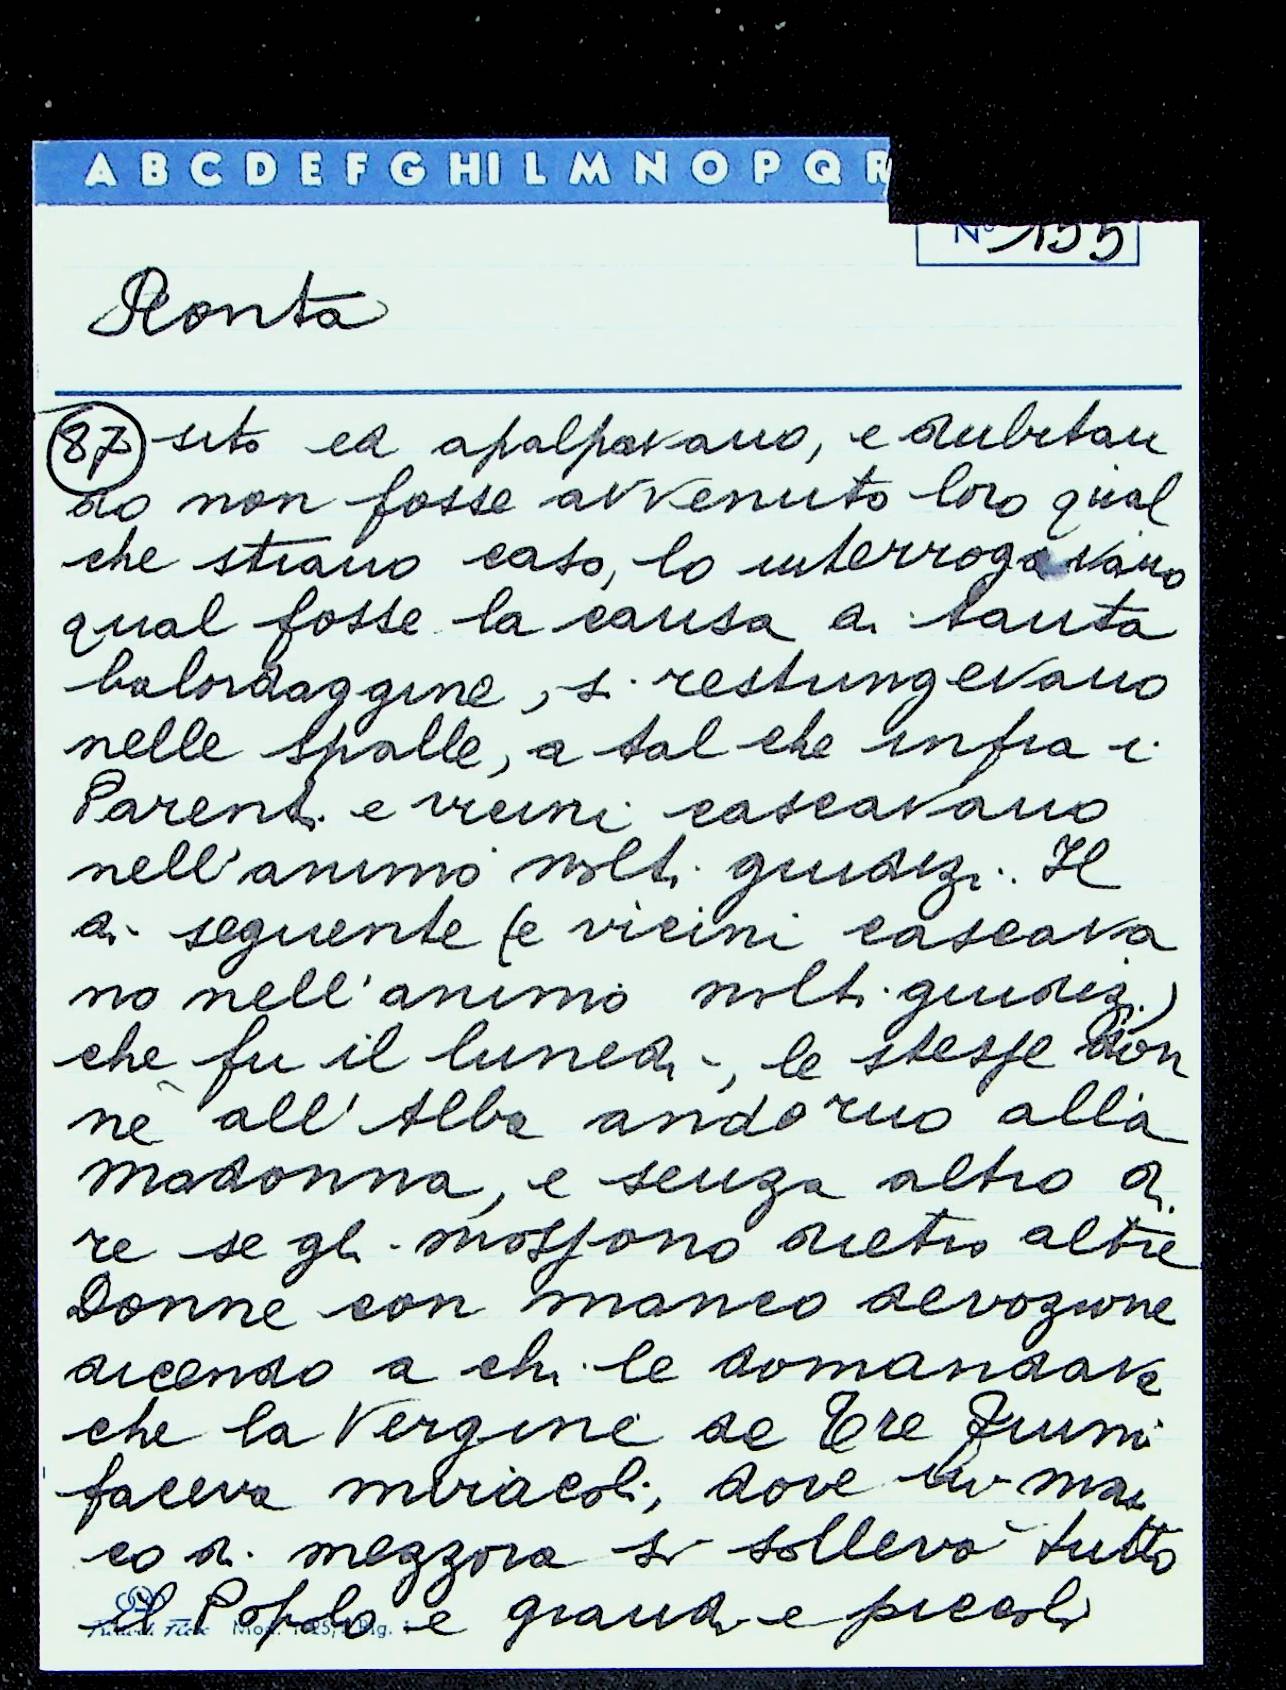 A B C D E F G HI L M N O P Q R
N° 155
Ronta
87 sito ed apalpavano, e dubitan
do non fosse avvenuto loro qual
che strano caso, lo interrogavano
qual fosse la causa di tanta
balordaggine, si restringevano
nelle spalle, a tal che infra i
Parenti e vicini cascavano
nell'animo molti giudizi. Il
di seguente (e vicini cascava
no nell'animo molti giudizi)
che fu il lunedi -, le stesse don
ne all'Alba andorno alla
madonna, e senza altro di
re se gli mossono dietro altre
Donne con manco devozione
dicendo a chi le domandava
che la Vergine de Tre Fiumi
faceva miracoli, dove in man
co di mezzora si sollevò tutto
il Popolo e grandi e piccoli